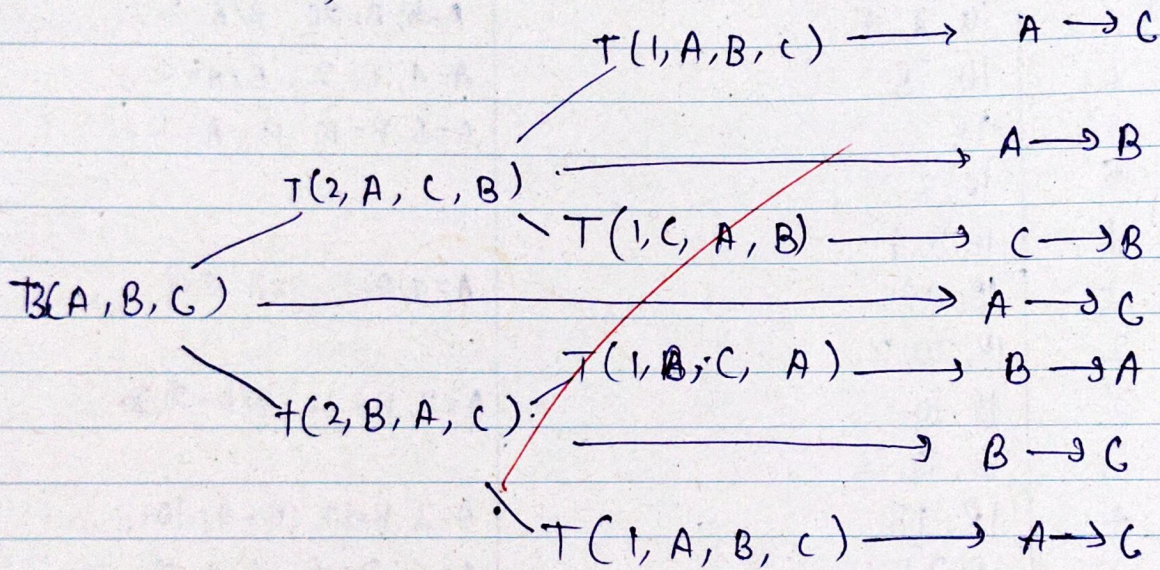 T(1, A, B, C) → A → C
A → B
T(2, A, C, B)
T(1, C, A, B) → C → B
T3(A, B, C) → A → C
T(1, B, C, A) → B → A
T(2, B, A, C)
→ B → C
T(1, A, B, C) → A → C